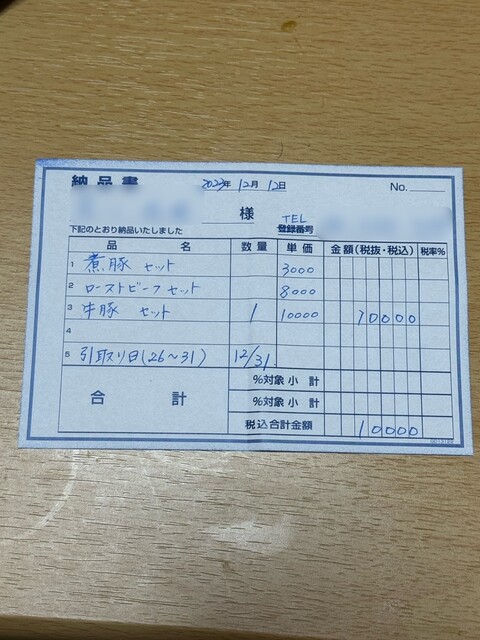 納品書 2023年 12月 12日 No.
様 TEL
下記のとおり納品いたしました 登録番号
品名 数量 単価 金額(税抜・税込) 税率%
1 煮豚 セット 3000
2 ローストビーフセット 8000
3 牛豚 セット 1 10000 10000
4
5 引取り日(26~31) 12/31
合計 %対象 小計
%対象 小計
税込合計金額 10000